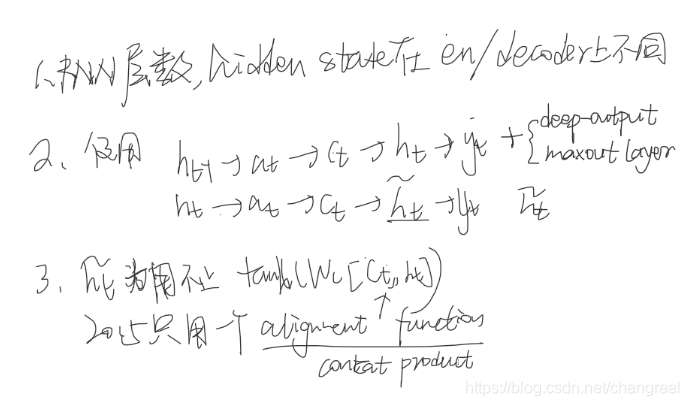 1、RNN层数, hidden state在 en/decoder上不同
2、使用 h_{t-1} → a_t → c_t → h_t → y_t + { deep-output
maxout layer
h_t → a_t → c_t → h̃_t → y_t h̃_t
3、h̃_t tanh(W_c[c_t, h_t])
2015只用一个 alignment function
concat product
https://blog.csdn.net/changreal